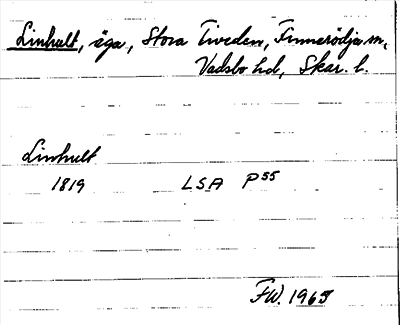 Linhult, äga, Stora Tiveden, Finnerödja sn,
Vadsbo hd, Skar. l.
Linhult
1819 LSA P55
FW. 1965